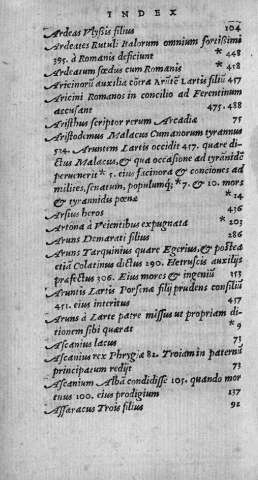 INDEX
Ardeas Vlyßis filius 104
Ardeates Rutuli Italorum omnium fortißimi
395. à Romanis deficiunt * 448
Ardeatum fœdus cum Romanis * 418
Aricinorũ auxilia cõtra Arũtẽ Lartis filiũ 457
Aricini Romanos in concilio ad Ferentinum
accusant 475. 488
Aristhus scriptor rerum Arcadiæ 75
Aristodemus Malacus Cumanorum tyrannus
524. Aruntem Lartis occidit 457. quare di-
ctus Malacus, & qua occasione ad tyrãnidẽ
peruenerit * 5. eius facinora & conciones ad
milites, senatum, populumq; * 7. & 10. mors
& tyrannidis pœnæ * 14
Arsius heros 436
Artona à Veientibus expugnata * 203
Aruns Demarati filius 286
Aruns Tarquinius quare Egerius, & postea
etiã Colatinus dictus 290. Hetruscis auxilijs
præfectus 306. Eius mores & ingeniũ 353
Aruntis Lartis Porsenæ filij prudens consiliũ
451. eius interitus 457
Aruns à Larte patre missus ut propriam di-
tionem sibi quærat * 9
Ascanius lacus 73
Ascanius rex Phrygiæ 82. Troiam in paternũ
principatum redijt 73
Ascanium Albã condidisse 105. quando mor
tuus 100. eius prodigium 137
Assaracus Trois filius 92